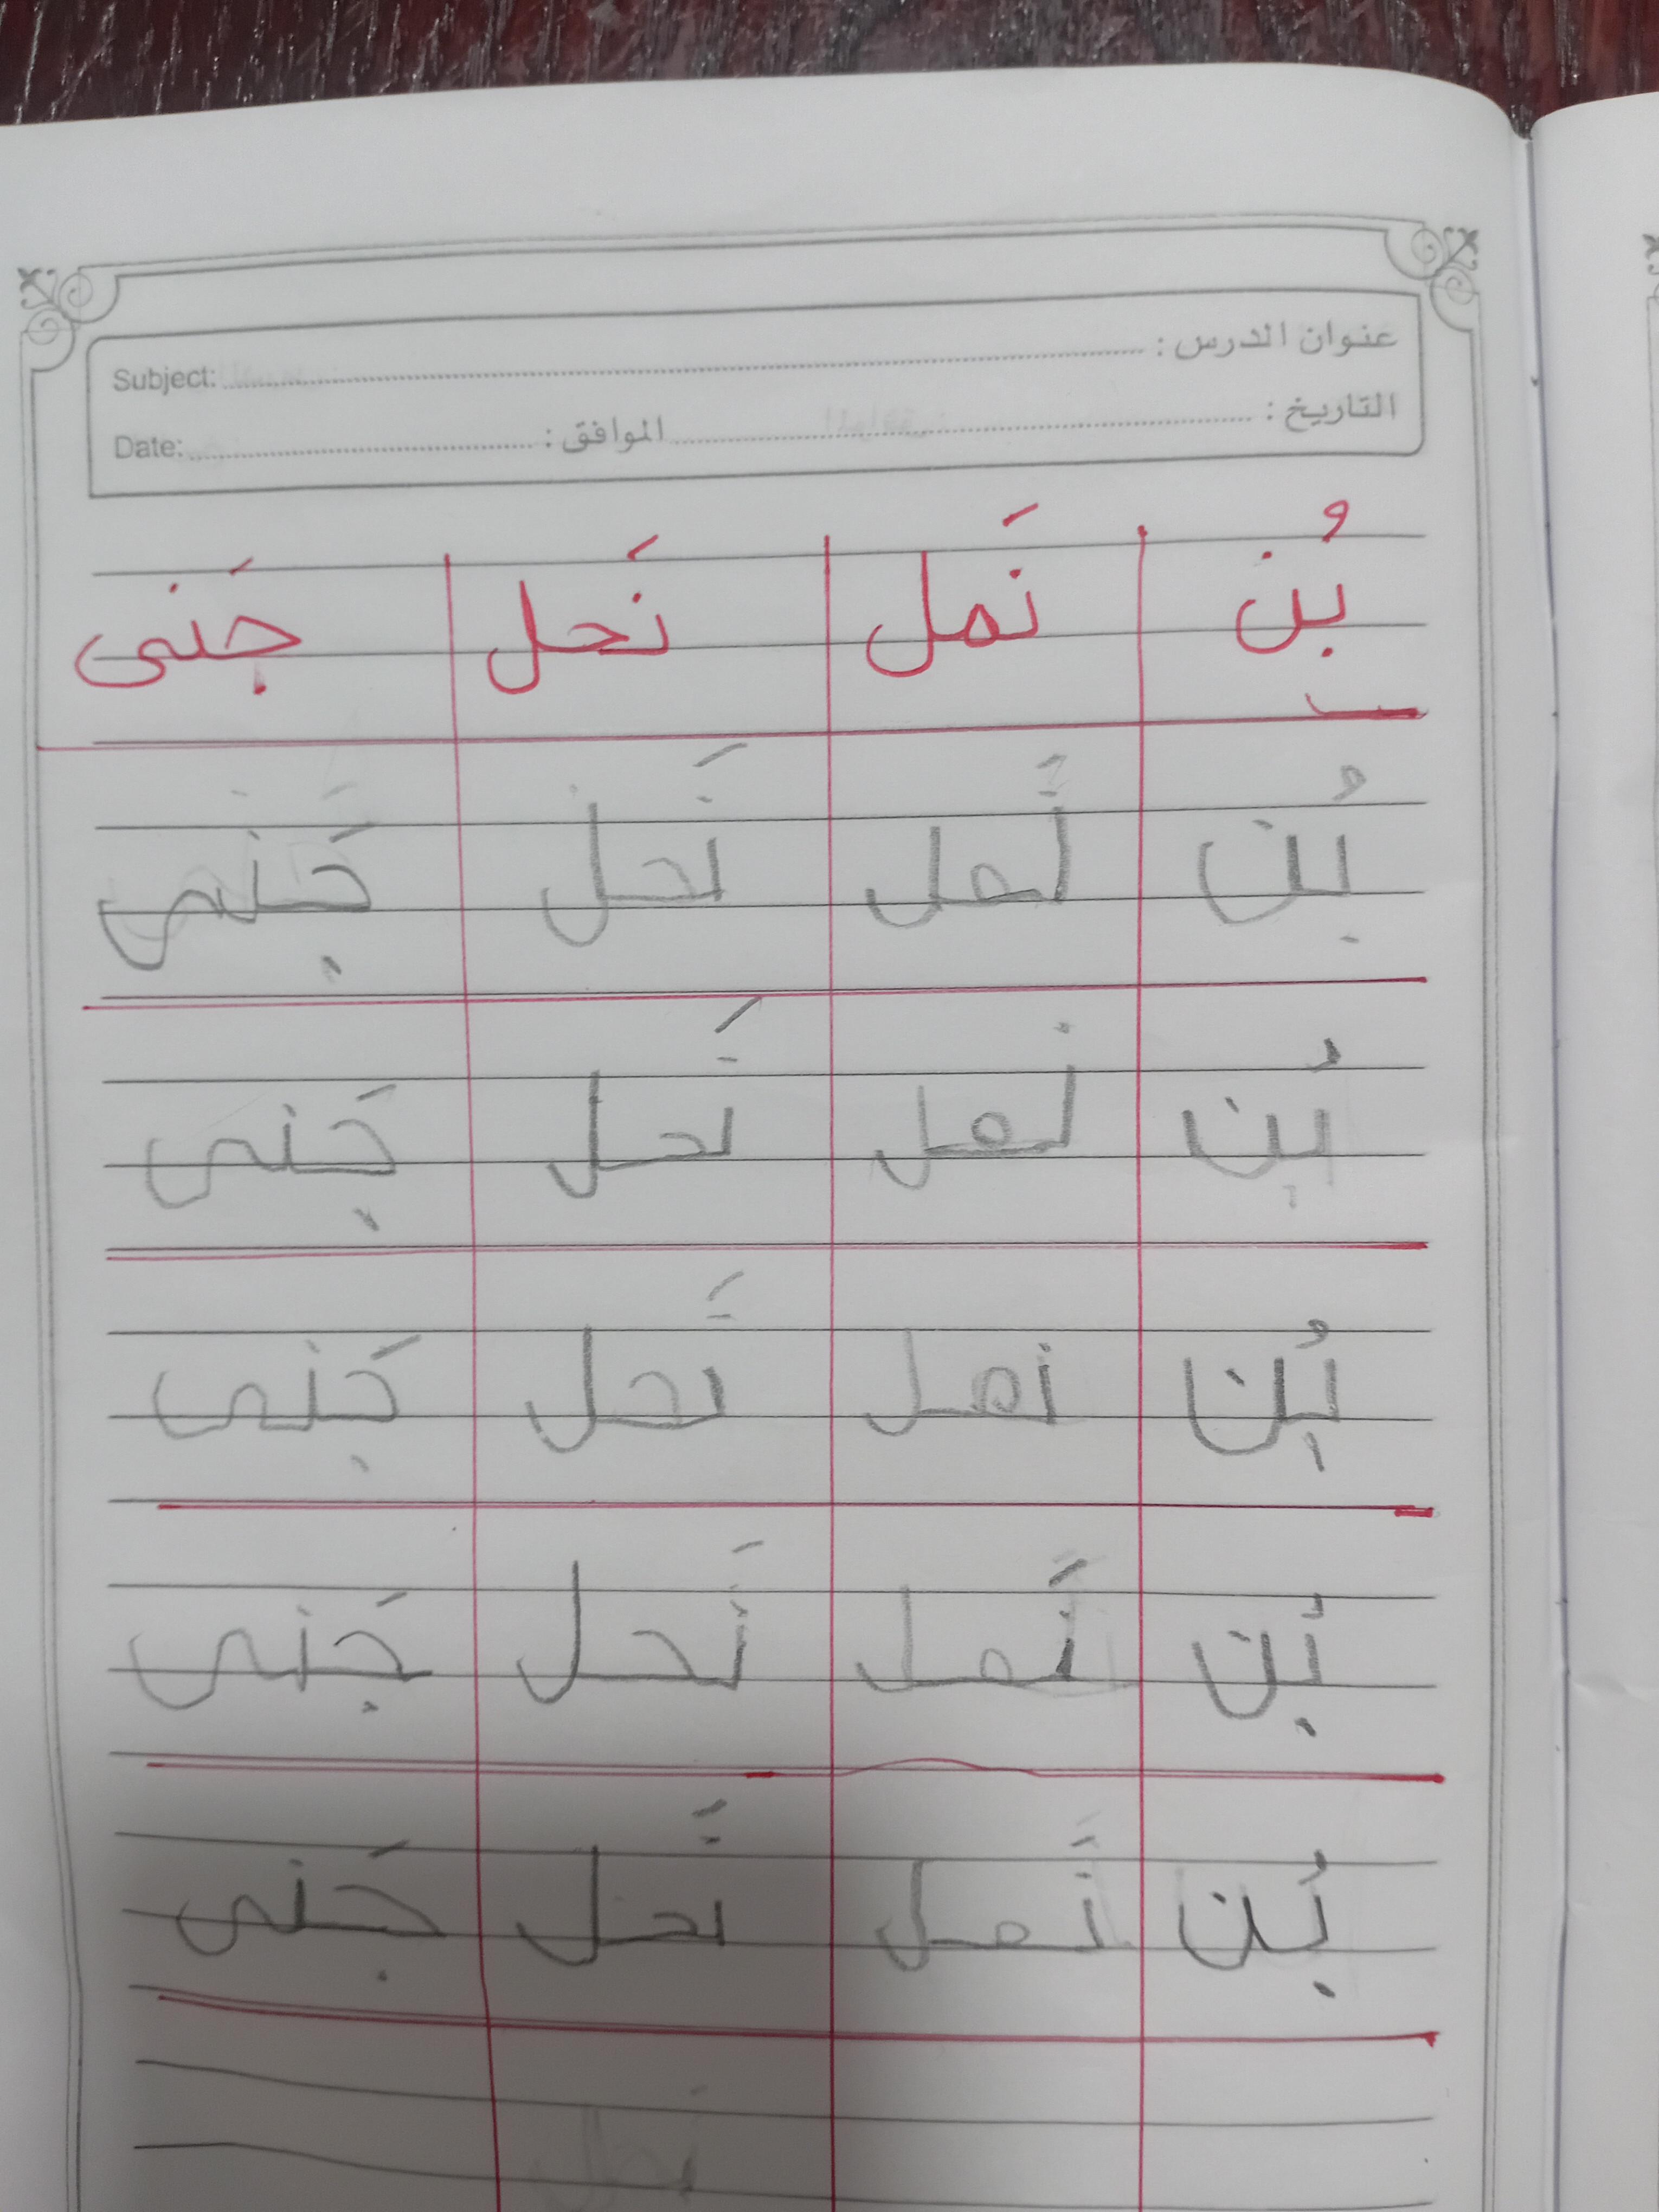 عنوان الدرس : Subject:
التاريخ : الموافق : Date:
بُن نَمل نَحل جَنى
بُن نَمل نَحل جَنى
بُن نمل نَحل جَنى
بُن نمل نَحل جَنى
بُن نَمل نَحل جَنى
بُن نَمل نَحل جَنى